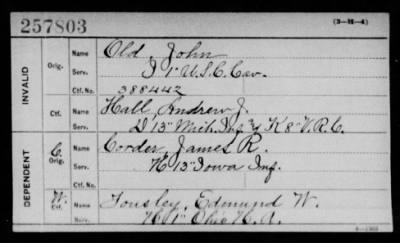 257803
(3—4)
INVALID
Orig.
Name Old, John
Serv. I 1" U.S.C. Cav.
Ctf. No. 388442
Ctf.
Name Hall, Andrew J.
Serv. D 13" Mich. Inf. & K 8" V.R.C.
DEPENDENT
C.
Orig.
Name Corder, James R.
Serv. H 13" Iowa Inf.
Ctf. No.
W.
Ctf.
Name Tousley, Edmund W.
Serv. H 1" Ohio H. A.